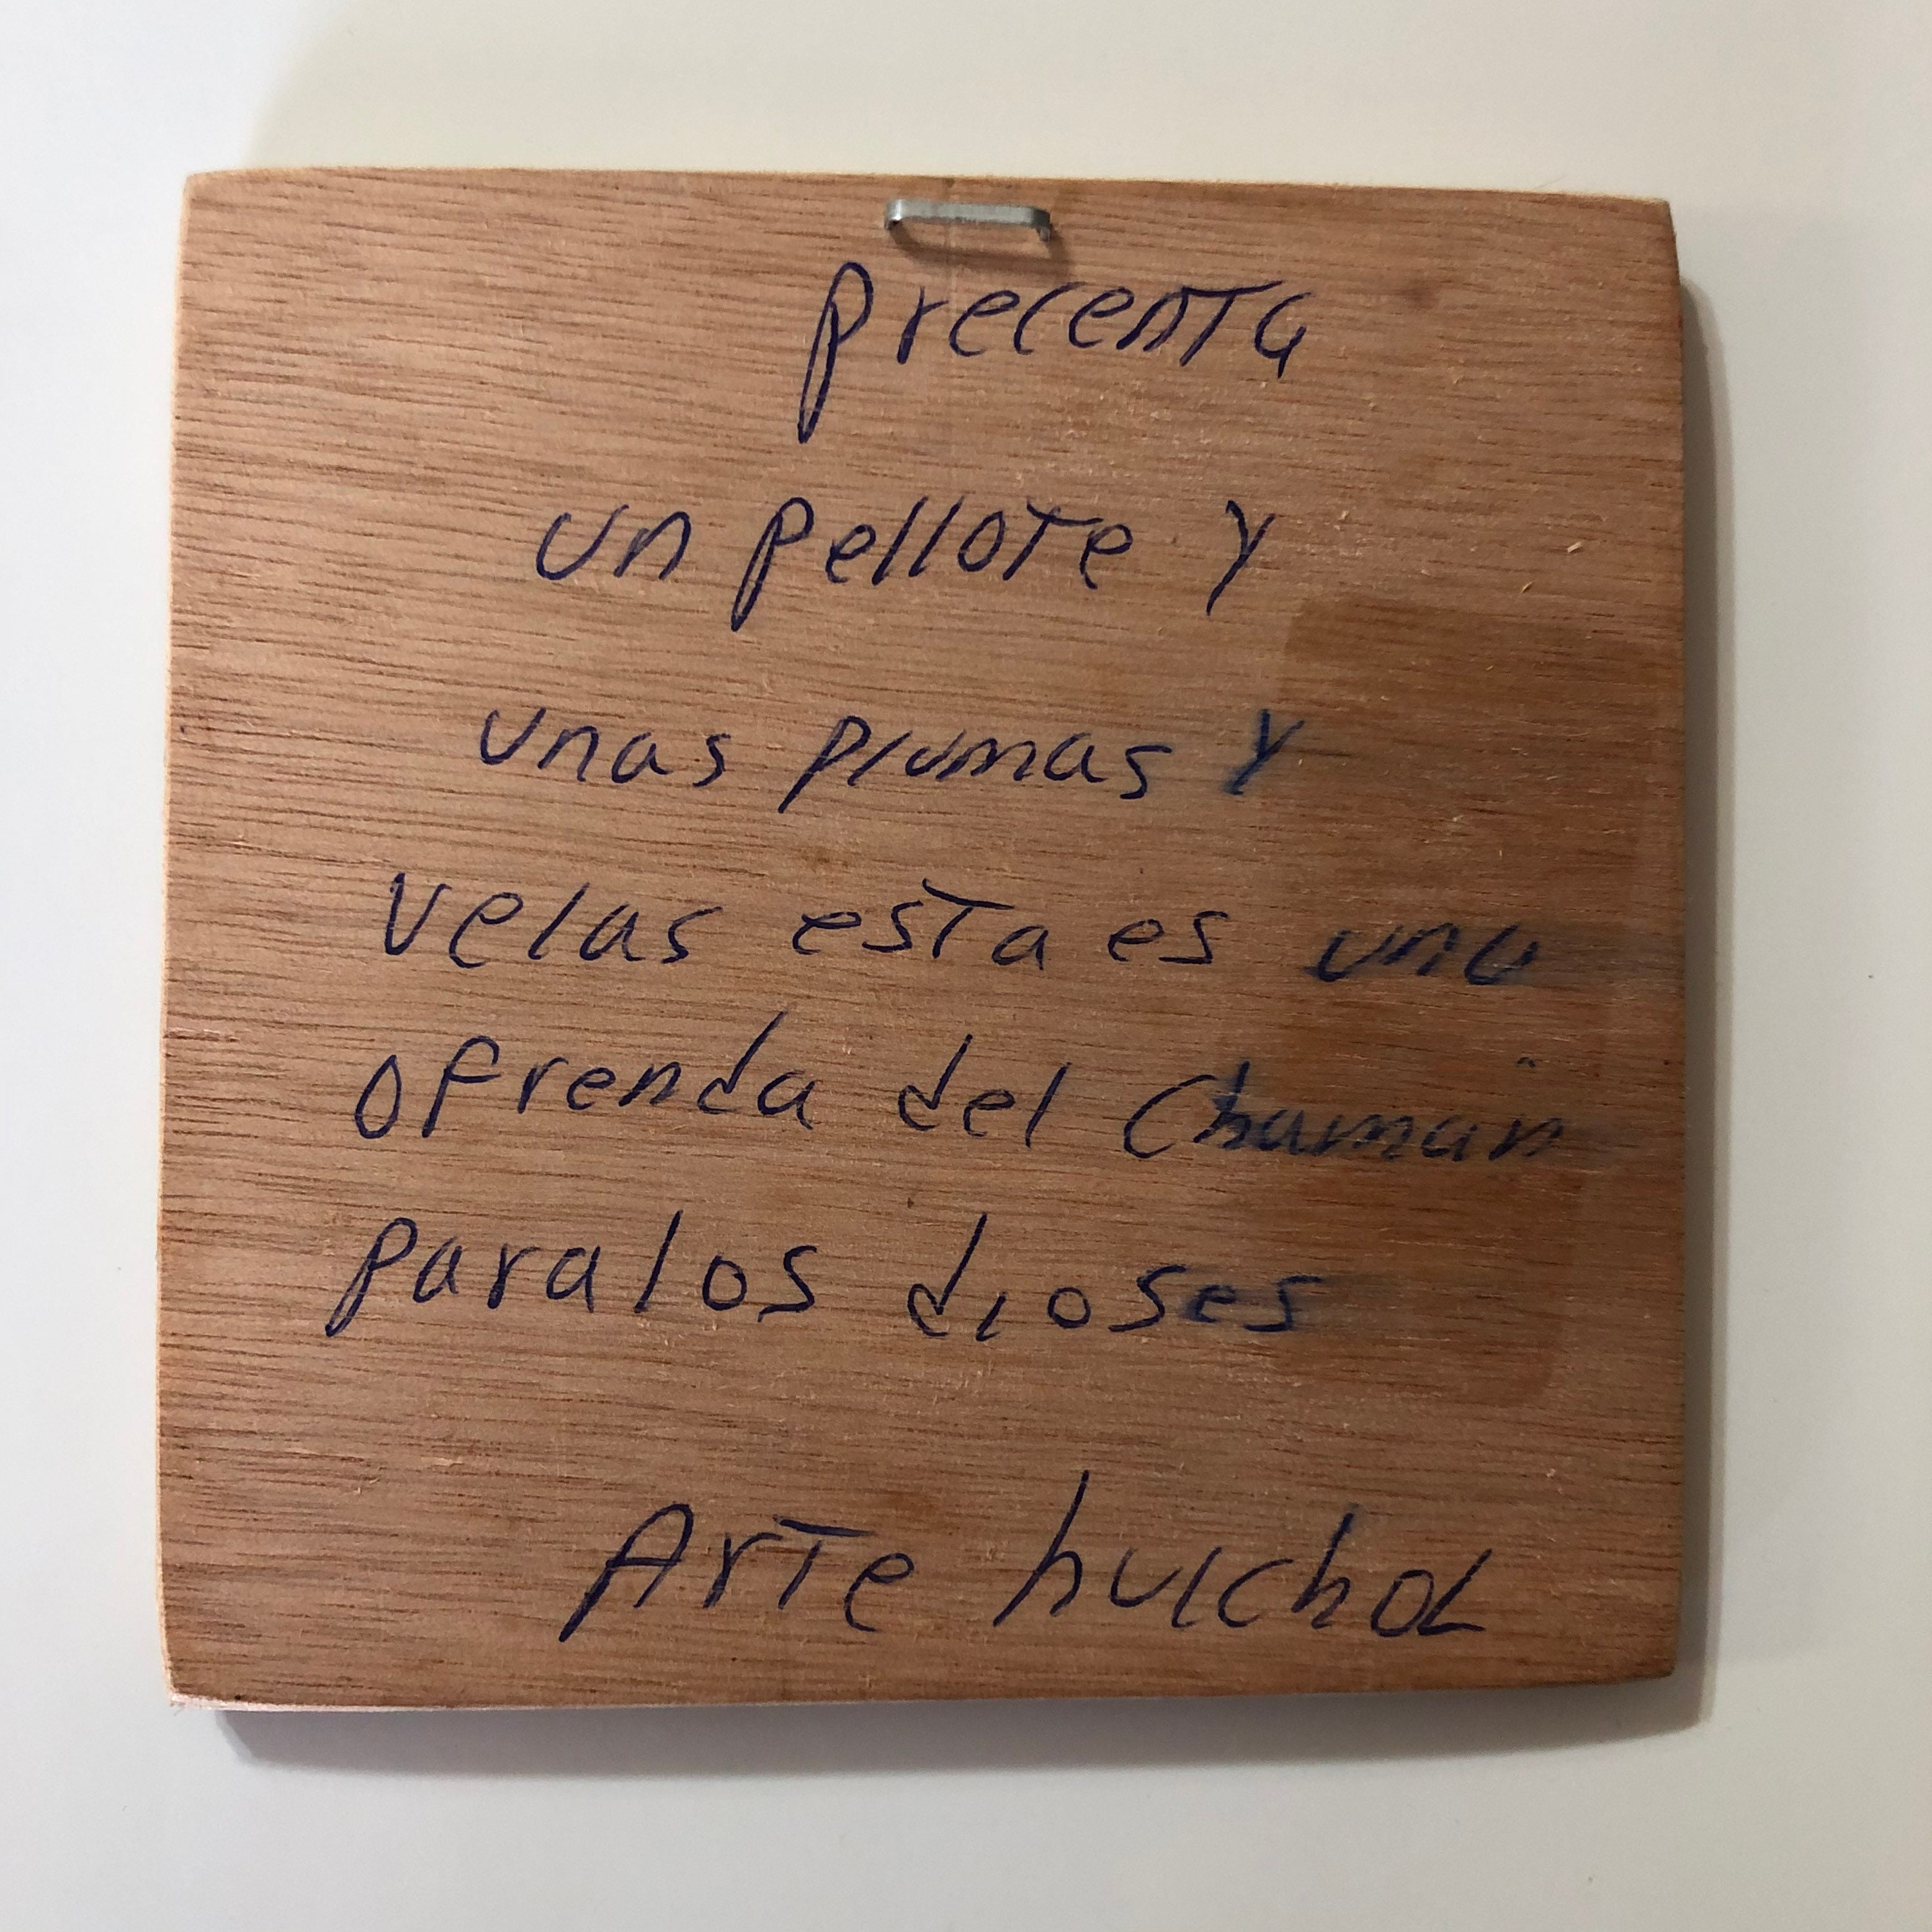 precenta
un pellote y
unas plumas y
velas esta es una
ofrenda del Chaman
para los dioses
Arte huichol